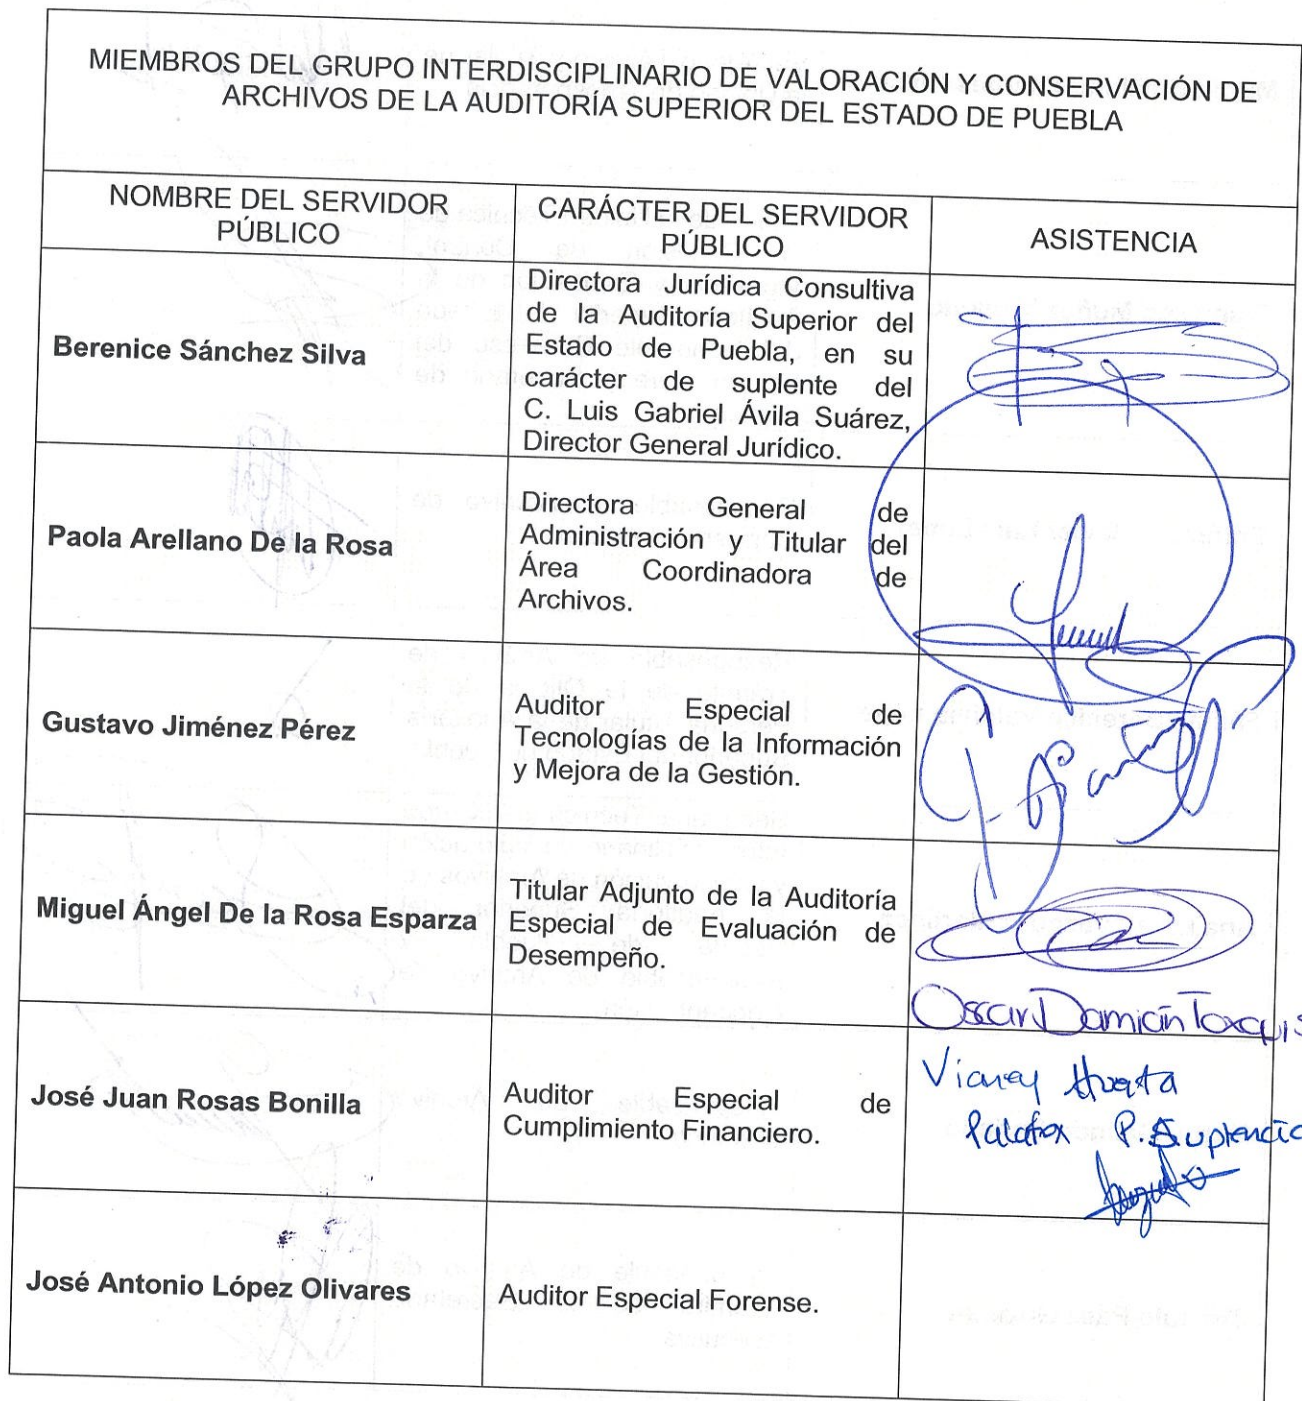 MIEMBROS DEL GRUPO INTERDISCIPLINARIO DE VALORACIÓN Y CONSERVACIÓN DE
ARCHIVOS DE LA AUDITORÍA SUPERIOR DEL ESTADO DE PUEBLA
NOMBRE DEL SERVIDOR
PÚBLICO
CARÁCTER DEL SERVIDOR
PÚBLICO
ASISTENCIA
Berenice Sánchez Silva
Directora Jurídica Consultiva
de la Auditoría Superior del
Estado de Puebla, en su
carácter de suplente del
C. Luis Gabriel Ávila Suárez,
Director General Jurídico.
Paola Arellano De la Rosa
Directora General de
Administración y Titular del
Área Coordinadora de
Archivos.
Gustavo Jiménez Pérez
Auditor Especial de
Tecnologías de la Información
y Mejora de la Gestión.
Miguel Ángel De la Rosa Esparza
Titular Adjunto de la Auditoría
Especial de Evaluación de
Desempeño.
Oscar Damián Toxqui
José Juan Rosas Bonilla
Auditor Especial de
Cumplimiento Financiero.
Vianey Huerta
Palafox P. Suplencia
José Antonio López Olivares
Auditor Especial Forense.